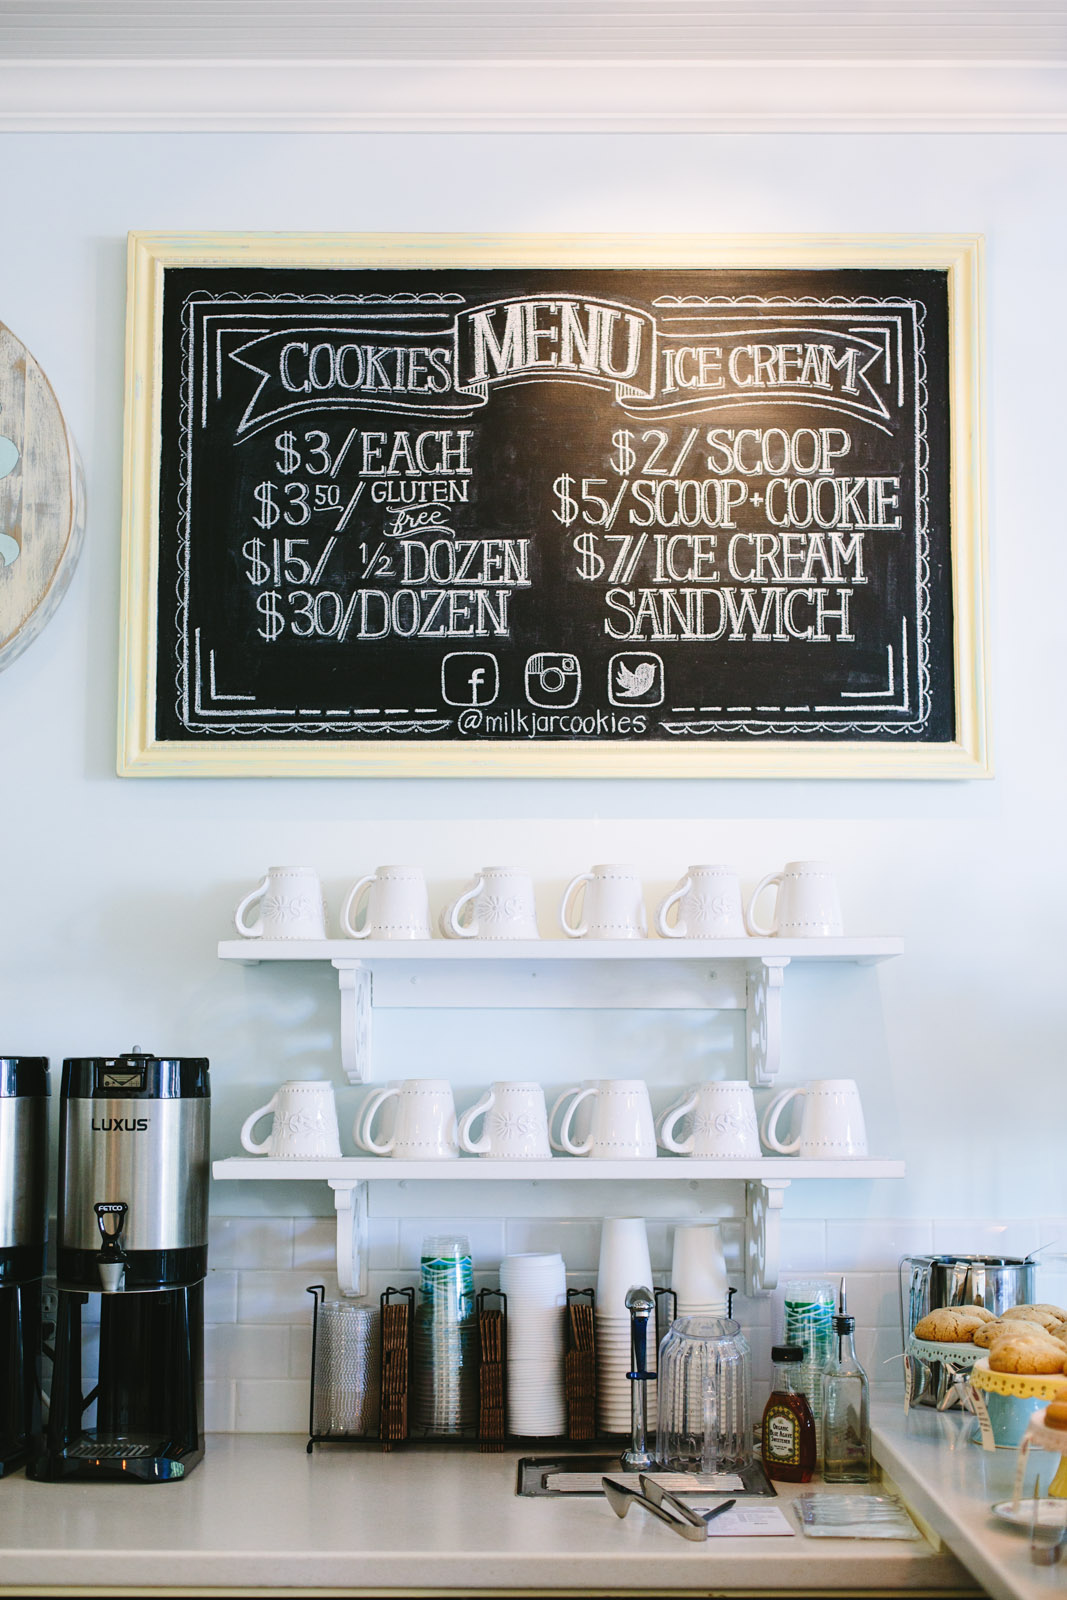 MENU
COOKIES
$3/EACH
$3 50/GLUTEN
free
$15/ ½ DOZEN
$30/DOZEN
ICE CREAM
$2/SCOOP
$5/SCOOP+COOKIE
$7/ICE CREAM
SANDWICH
@milkjarcookies
LUXUS
FETCO
ORGANIC
BLUE AGAVE
SWEETENER